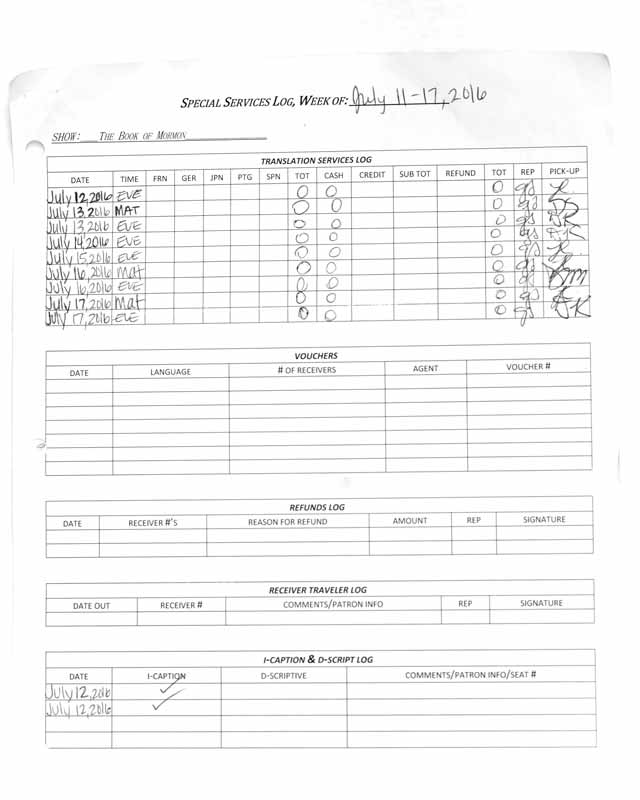 SPECIAL SERVICES LOG, WEEK OF: July 11-17, 2016
SHOW: THE BOOK OF MORMON
TRANSLATION SERVICES LOG
DATE TIME FRN GER JPN PTG SPN TOT CASH CREDIT SUB TOT REFUND TOT REP PICK-UP
July 12, 2016 EVE 0 0 0 gs
July 13, 2016 MAT 0 0 0 gs
July 13, 2016 EVE 0 0 0 gs
July 14, 2016 EVE 0 0 0 gs
July 15, 2016 EVE 0 0 0 gs
July 16, 2016 Mat 0 0 0 gs
July 16, 2016 EVE 0 0 0 gs
July 17, 2016 Mat 0 0 0 gs
July 17, 2016 EVE 0 0 0 gs
VOUCHERS
DATE LANGUAGE # OF RECEIVERS AGENT VOUCHER #
REFUNDS LOG
DATE RECEIVER #'S REASON FOR REFUND AMOUNT REP SIGNATURE
RECEIVER TRAVELER LOG
DATE OUT RECEIVER # COMMENTS/PATRON INFO REP SIGNATURE
I-CAPTION & D-SCRIPT LOG
DATE I-CAPTION D-SCRIPTIVE COMMENTS/PATRON INFO/SEAT #
July 12, 2016 ✓
July 12, 2016 ✓